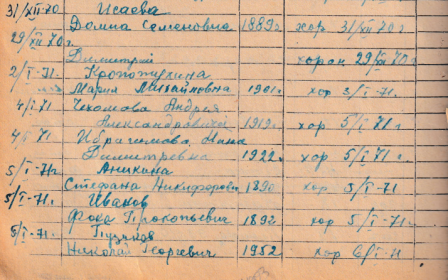 31/XII-70 Исаева
Домна Семеновна 1889г. хор 31/XII 70г
29/XII 70г.
Димитрий хорон 29/XII 70г
2/I-71. Кропотухина
Мария Михайловна 1901г. хор 3/I-71.
4/I 71 Чехомова Андрея
Александровича 1919г. хор 5/I 71г
4/I 71 Ибрагимова Нина
Димитревна 1922г. хор 5/I 71г.
5/I-71г Аникина
Стефана Никифоровн 1890 хор 5/I-71
5/I-71. Иванов
Фока Прокопьевич 1892 хор 5/I-71.
5/I-71. Пузяков
Николай Георгевич 1952 хор 6/I-71